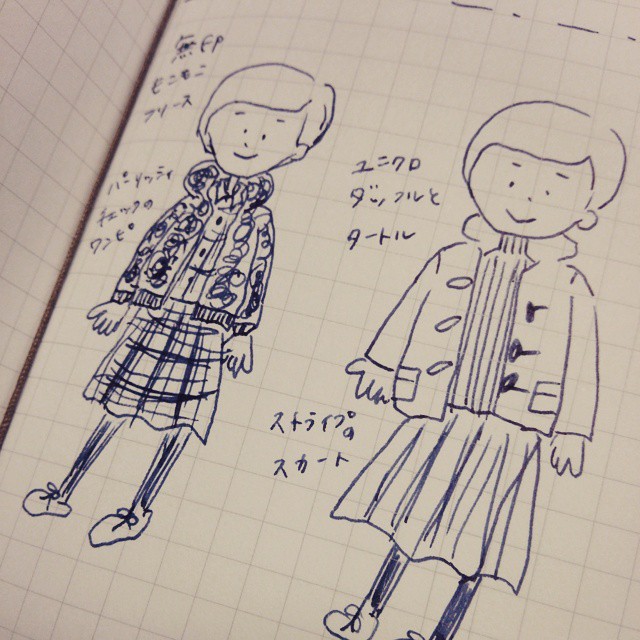 無印
モコモコ
フリース
バイヤッティ
チェックの
ワンピ
ユニクロ
ダッフルと
タートル
ストライプの
スカート